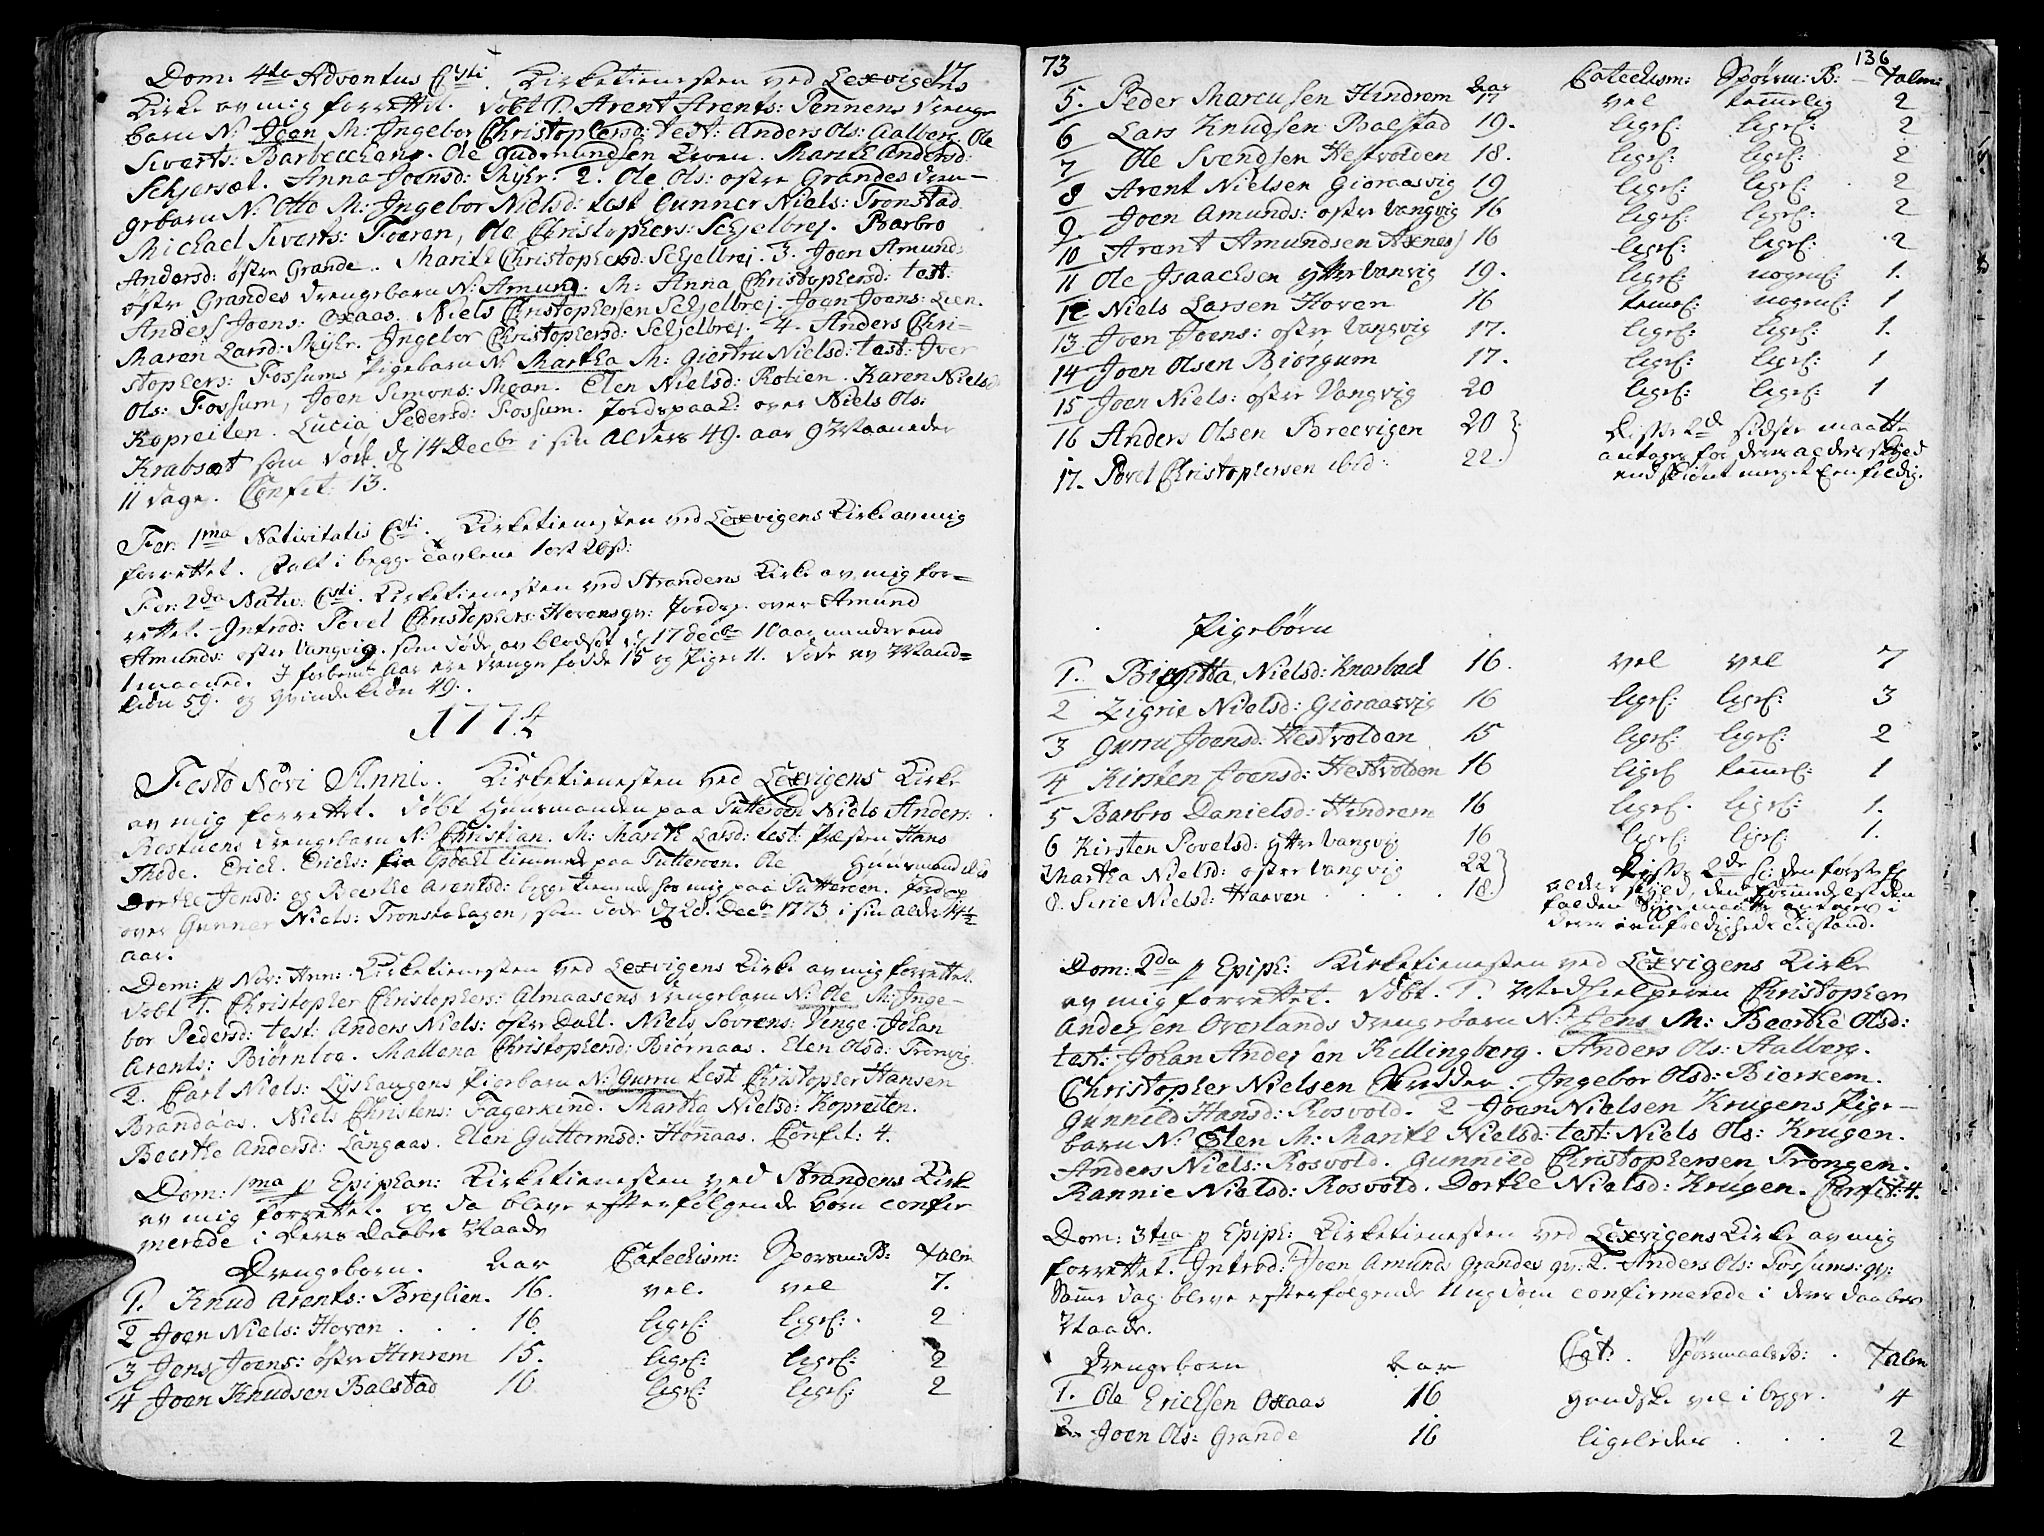 17
Dom: 4ta Adventus Csti. Kirketienesten ved Lexvigens
Kirke av mig forrettet. Døbt 1. Arent Arents: Pennens drenge
barn N: Joen M: Ingebor Christophersd: test: Anders Ols: Aalberg, Ole
Siverts: Barbecchens. Ole Gudmundsen Lien. Marith Andersd:
Schjersæt. Anna Joensd: Myhr: 2. Ole Ols: østre Grandes dren-
gebarn N: Otto M: Ingebor Nielsd: test Gunner Niels: Tronstad
Michael Siverts: Foeren, Ole Christophers: Schjelbrej. Barbro
Andersd: østre Grande. Marith Christophersd: Schjelbrej. 3. Joen Amund:
østre Grandes drengebarn N: Amund. M: Anna Christophersd: test:
Anders Joens: Oxaas. Niels Christophersen Schjelbrej. Joen Joens: Lien.
Maren Larsd: Myhr. Ingebor Christophersd: Schjelbrej. 4. Anders Chri-
stophers: Fossums Pigebarn N: Martha M: Giertru Nielsd: test: Iver
Ols: Fossum, Joen Simons: Moan. Elen Nielsd: Rotien. Karen Niels
Kopreiten. Lucia Pedersd: Fossum. Jordspaak: over Niels Ols:
Krabsæt som døde d 14 Decbr i sin Alders 49. aar 9 Maaneder
11 dage. Confit: 13.
Fer: 1ma Nativitatis Csti. Kirketienesten ved Lexvigens Kirke av mig
forrettet. Falt i begge Tavlene 1 ort 20 s:
Fer: 2da Nativ: Csti. Kirketienesten ved Strandens Kirke av mig for-
rettet. Introd: Povel Christophers: Hovens qv: Jordsp. over Amund
Amunds: øster Vangvig. som døde av blodsot d 17 decbr 10 aar minder end
1 maaned. I forbemt Aar ere drenge fødde 15 og Piger 11. døde av Mand-
kiøn 59. og Qvindekiøn 49.
1774
Festo Novi Anni. Kirketienesten ved Lexvigens Kirke
av mig forrettet. døbt Huusmanden paa Tutteroen Niels Anders:
Rostuens drengebarn N: Christian. M: Marith Larsd: test: Præsten Hans
Thode. Erick Ericks: fra Opdahl tienende paa Tutteroen. Ole Huusmand
Dorthe Jensd: og Beerthe Arentsd: begge tienende hos mig paa Tutteroen. Jordsp
over Gunner Niels: Tronstahagen, som døde d 28. Decbr 1773 i sin alder 14½
aar.
Dom: p Nov: Ann: Kirketienesten ved Lexvigens Kirke av mig forrettet.
døbt 1. Christopher Christophers: Almaasens drengebarn N: Ole M: Inge-
bor Pedersd: test: Anders Niels: østre Dahl. Niels Sovrens: Venge. Johan
Arents: Biørnloe. Mallena Christophersd: Biørnaas. Elen Olsd: Tronvig
2. Carl Niels: Lyshaugens Pigebarn N: Gurru test Christopher Hansen
Brandaas. Niels Christens: Fagerkind. Martha Nielsd: Kopreiten.
Beerthe Andersd: Langaas. Elen Guttormsd: Honaas. Confit: 4.
Dom: 1ma p Epiphan: Kirketienesten ved Strandens Kirke
av mig forrettet. og da bleve efterfølgende børn confir
merede i deres Daabes Naade
Drengebørn. Aar Catechism: Spørsm: B: Talm
1. Knud Arents: Brejlien. 16. vel. vel 7.
2 Joen Niels: Hoven 16. liges: liges: 2
3 Jens Joens: østre Hinrem 15. liges: liges: 2
4 Joen Knudsen Balstad 16 liges: liges: 2
73 136
Aar Catechism: Spørsm: B: Talm:
5. Peder Marcusen Hindrem 17 vel temelig 2
6 Lars Knudsen Balstad 19. liges: liges: 2
7 Ole Svendsen Hestvolden 18. liges: liges: 2
8 Arent Nielsen Gioraasvig 19 liges: liges: 2
9 Joen Amunds: øster Vangvig 16 liges: liges: 2
10 Arent Amundsen Axenes 16 liges: liges: 2
11 Ole Isaachsen ytter Vanvig 19. liges: nogens: 1.
12 Niels Larsen Hoven 16 temes: nogens: 1
13 Joen Joens: øster Vangvig 17. liges: liges: 1.
14 Joen Olsen Biørgum 17. liges: liges: 1
15 Joen Niels: øster Vangvig 20 liges: liges: 1
16 Anders Olsen Breevigen 20 } disse 2de sidste maatte
17. Povel Christophersen ibid: 22. } antages for deres alders skyld
endskiønt meget Eenfoldig.
Pigebørn
1. Birgitta Nielsd: Knarbach 16. vel vel 7
2 Zigrie Nielsd: Gioraasvig 16 liges: liges: 3
3 Gurru Joensd: Hestvolden 15 liges: liges: 2
4 Kirsten Joensd: Hestvolden 16 liges temes: 1
5 Barbro Danielsd: Hindrem 16 liges. liges: 1.
6 Kirsten Povelsd: ytter Vangvig 16 liges: liges: 1.
Martha Nielsd: øster Vangvig 22 } disse 2de den første
8. Sirie Nielsd: Haaven 18 } alders skyld, den
maatte antages i
deres eenfoldigheds tilstand.
Dom: 2da p Epiph: Kirketienesten ved Lexvigens Kirke
av mig forrettet. døbt. 1. Medhielperen Christopher
Andersen Overlands drengebarn N: Jens M: Beerthe Olsd:
test: Johan Andersen Killingberg. Anders Ols: Aalberg.
Christopher Nielsen Skrædder. Ingebor Olsd: Bierkem.
Gunnild Hansd: Rosvold. 2 Joen Nielsen Krugens Pige-
barn N: Elen M: Marith Nielsd: test: Niels Ols: Krugen.
Anders Niels: Rosvold. Gunnild Christophersen Trongen.
Rannie Nielsd: Rosvold. Dorthe Nielsd: Krugen. Confit: 4.
Dom: 3tia p Epiph: Kirketienesten ved Lexvigens Kirke av mig
forrettet. Introd: 1 Joen Amunds Grandes qv: 2. Anders Ols: Fossums: qv:
Samme dag bleve efterfølgende Ungdom confirmerede i deres daabes
Naade.
Drengebørn Aar Cat: Spørsmaals B: Talm
1. Ole Ericksen Oxaas 16 Handske vel i begge. 4
2. Joen Ols: Grande 16 ligeledes 2